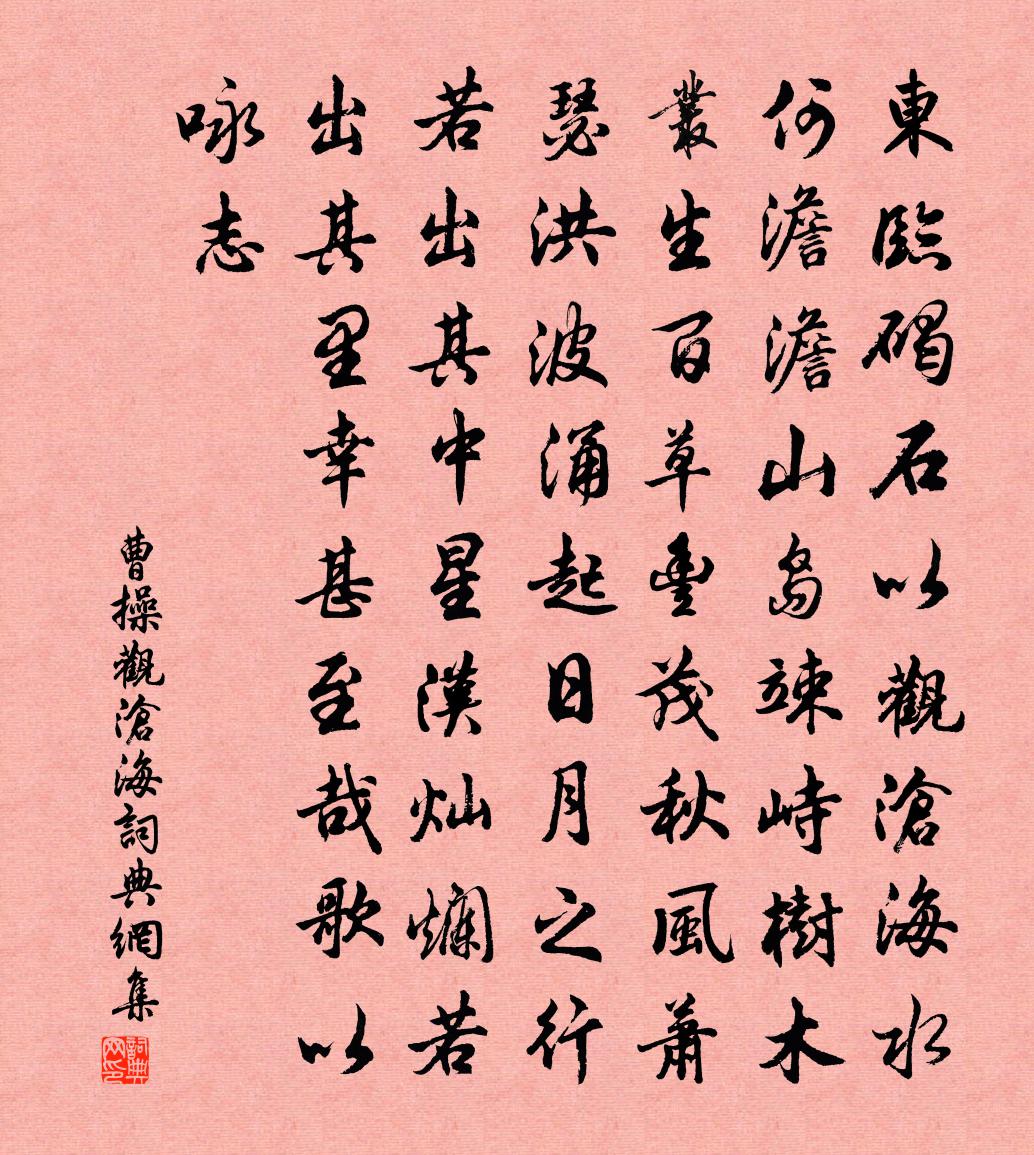 東臨碣石以觀滄海水
何澹澹山島竦峙樹木
叢生百草豐茂秋風蕭
瑟洪波涌起日月之行
若出其中星漢灿爛若
出其里幸甚至哉歌以
咏志
曹操觀滄海詞典網集
詞典网印